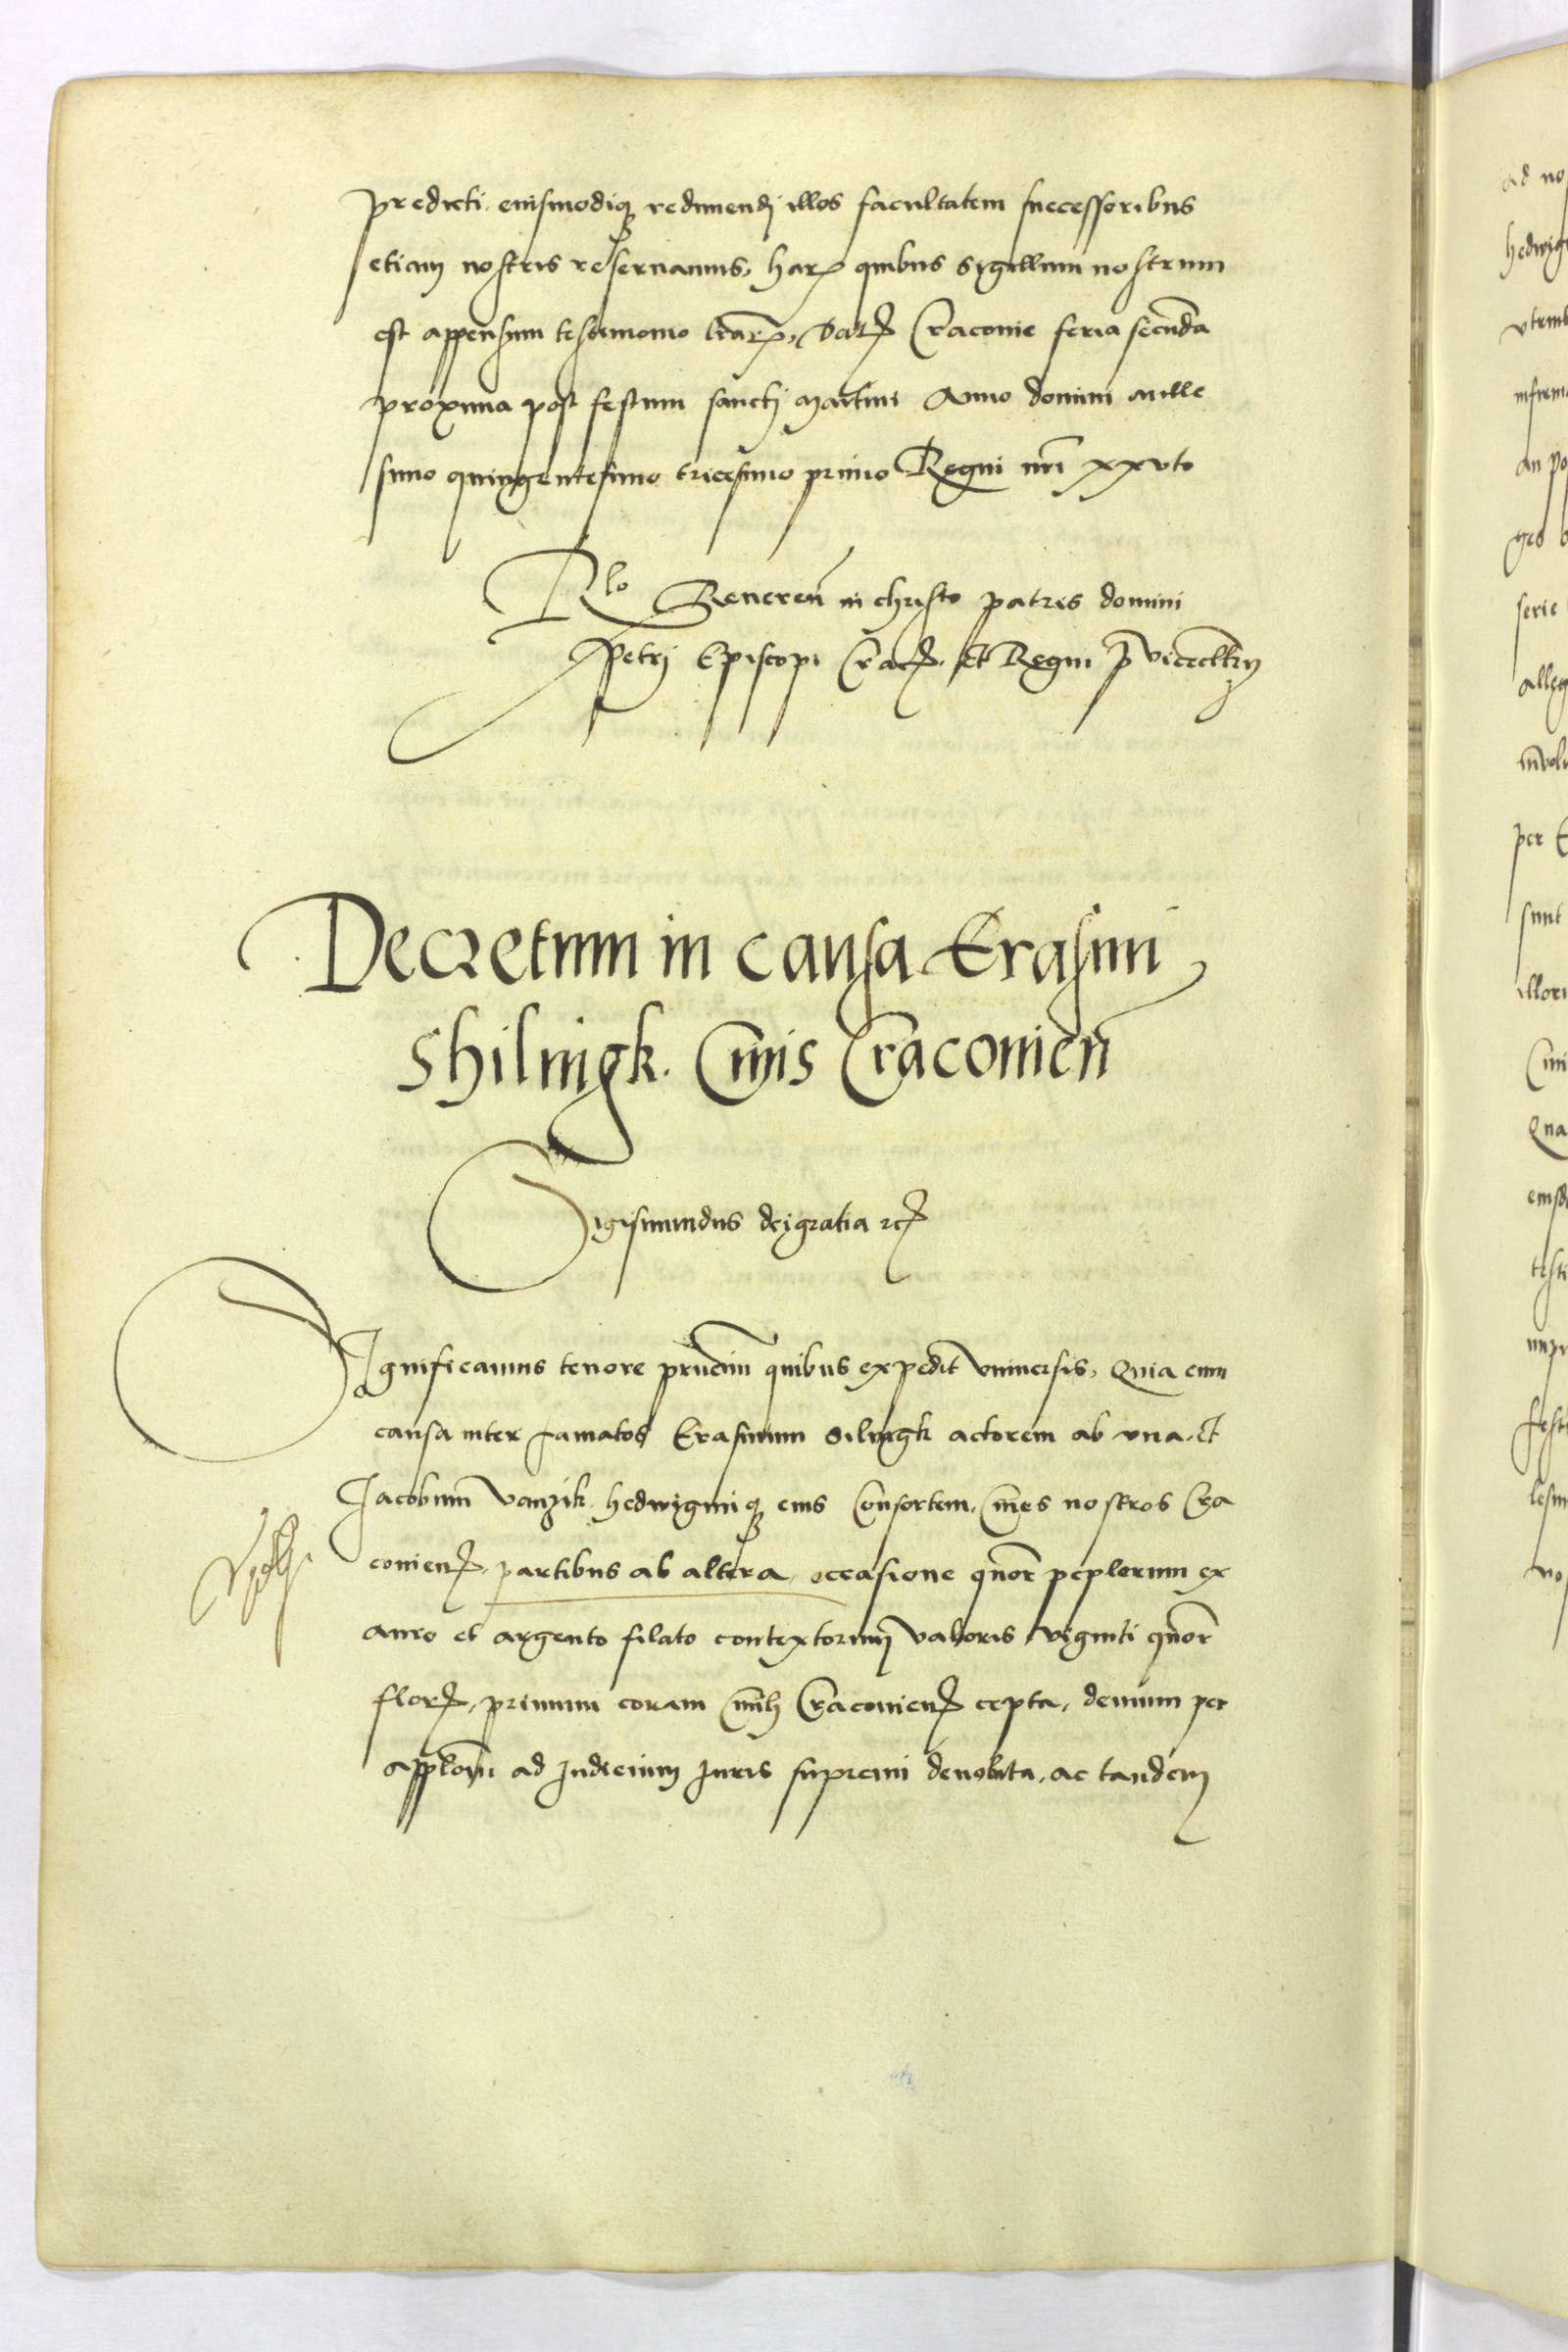 predicti. eiusmodique redimendi illos facultatem successoribus
etiam nostris reseruamus, harum quibus sigillum nostrum
est appensum testimonio lrarum, Dat Cracouie feria secunda
proxima post festum sancti Martini Anno domini mille
simo quingentesimo tricesimo primo Regni nri xxvto
Rlo Reueren in christo patris domini
Petri Episcopi Crac. et Regni p vicecltrij
Decretum in causa Erasmi
Shilingk. Ciuis Cracouien
Sigismundus dei gratia rc
Significamus tenore prncium quibus expedit vniuersis, Quia cum
causa inter famatos Erasmum Silingk actorem ab vna. et
Jacobum Vanzik. hedwigimque eius Consortem. Ciues nostros Cra
couien. partibus ab altera, occasione qnor peplorum ex
auro et argento filato contextorum valoris viginti qnor
flor, primum coram Cracouien cepta, demum per
applom ad Judicium Juris supremi deuoluta, ac tandem
ad no
hedwig
an po
serie
alleg
per E
sunt
Qua